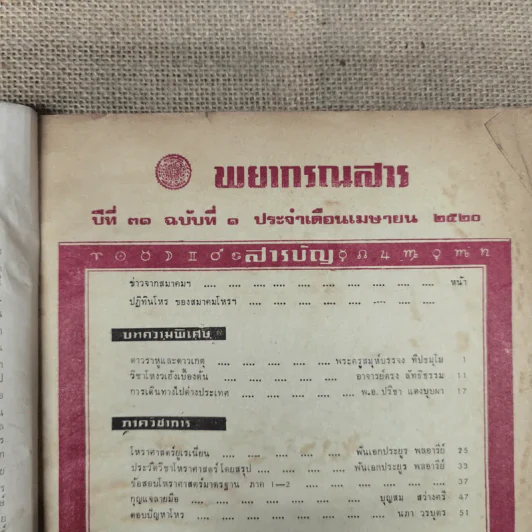 พยากรณสาร
ปีที่ ๓๑ ฉบับที่ ๑ ประจำเดือนเมษายน ๒๕๒๐
สารบัญ
ข่าวจากสมาคมฯ .... .... .... .... .... .... .... .... .... .... หน้า
ปฏิทินโหร ของสมาคมโหรฯ .... .... .... .... .... .... ....
บทความพิเศษ
ดาวราหูและดาวเกตุ .... .... .... .... .... พระครูสมุห์บรรจง ทีปธมฺโม 1
วิชาโหงวเฮ้งเบื้องต้น .... .... .... .... .... .... อาจารย์ตรง ลัทธิธรรม 11
การเดินทางไปต่างประเทศ .... .... .... .... .... พ.อ. ปรีชา แดงบุบผา 17
ภาควิชาการ
โหราศาสตร์ยูเรเนียน .... .... .... .... .... .... พันเอกประยูร พลอารีย์ 25
ประวัติวิชาโหราศาสตร์โดยสรุป .... .... .... .... พันเอกประยูร พลอารีย์ 33
ข้อสอบโหราศาสตร์มาตรฐาน ภาค 1—2 .... .... .... .... .... .... 37
กุญแจลายมือ .... .... .... .... .... .... .... .... บุญสม สว่างศรี 47
ตอบปัญหาโหร .... .... .... .... .... .... .... .... นภา วรบุตร 51